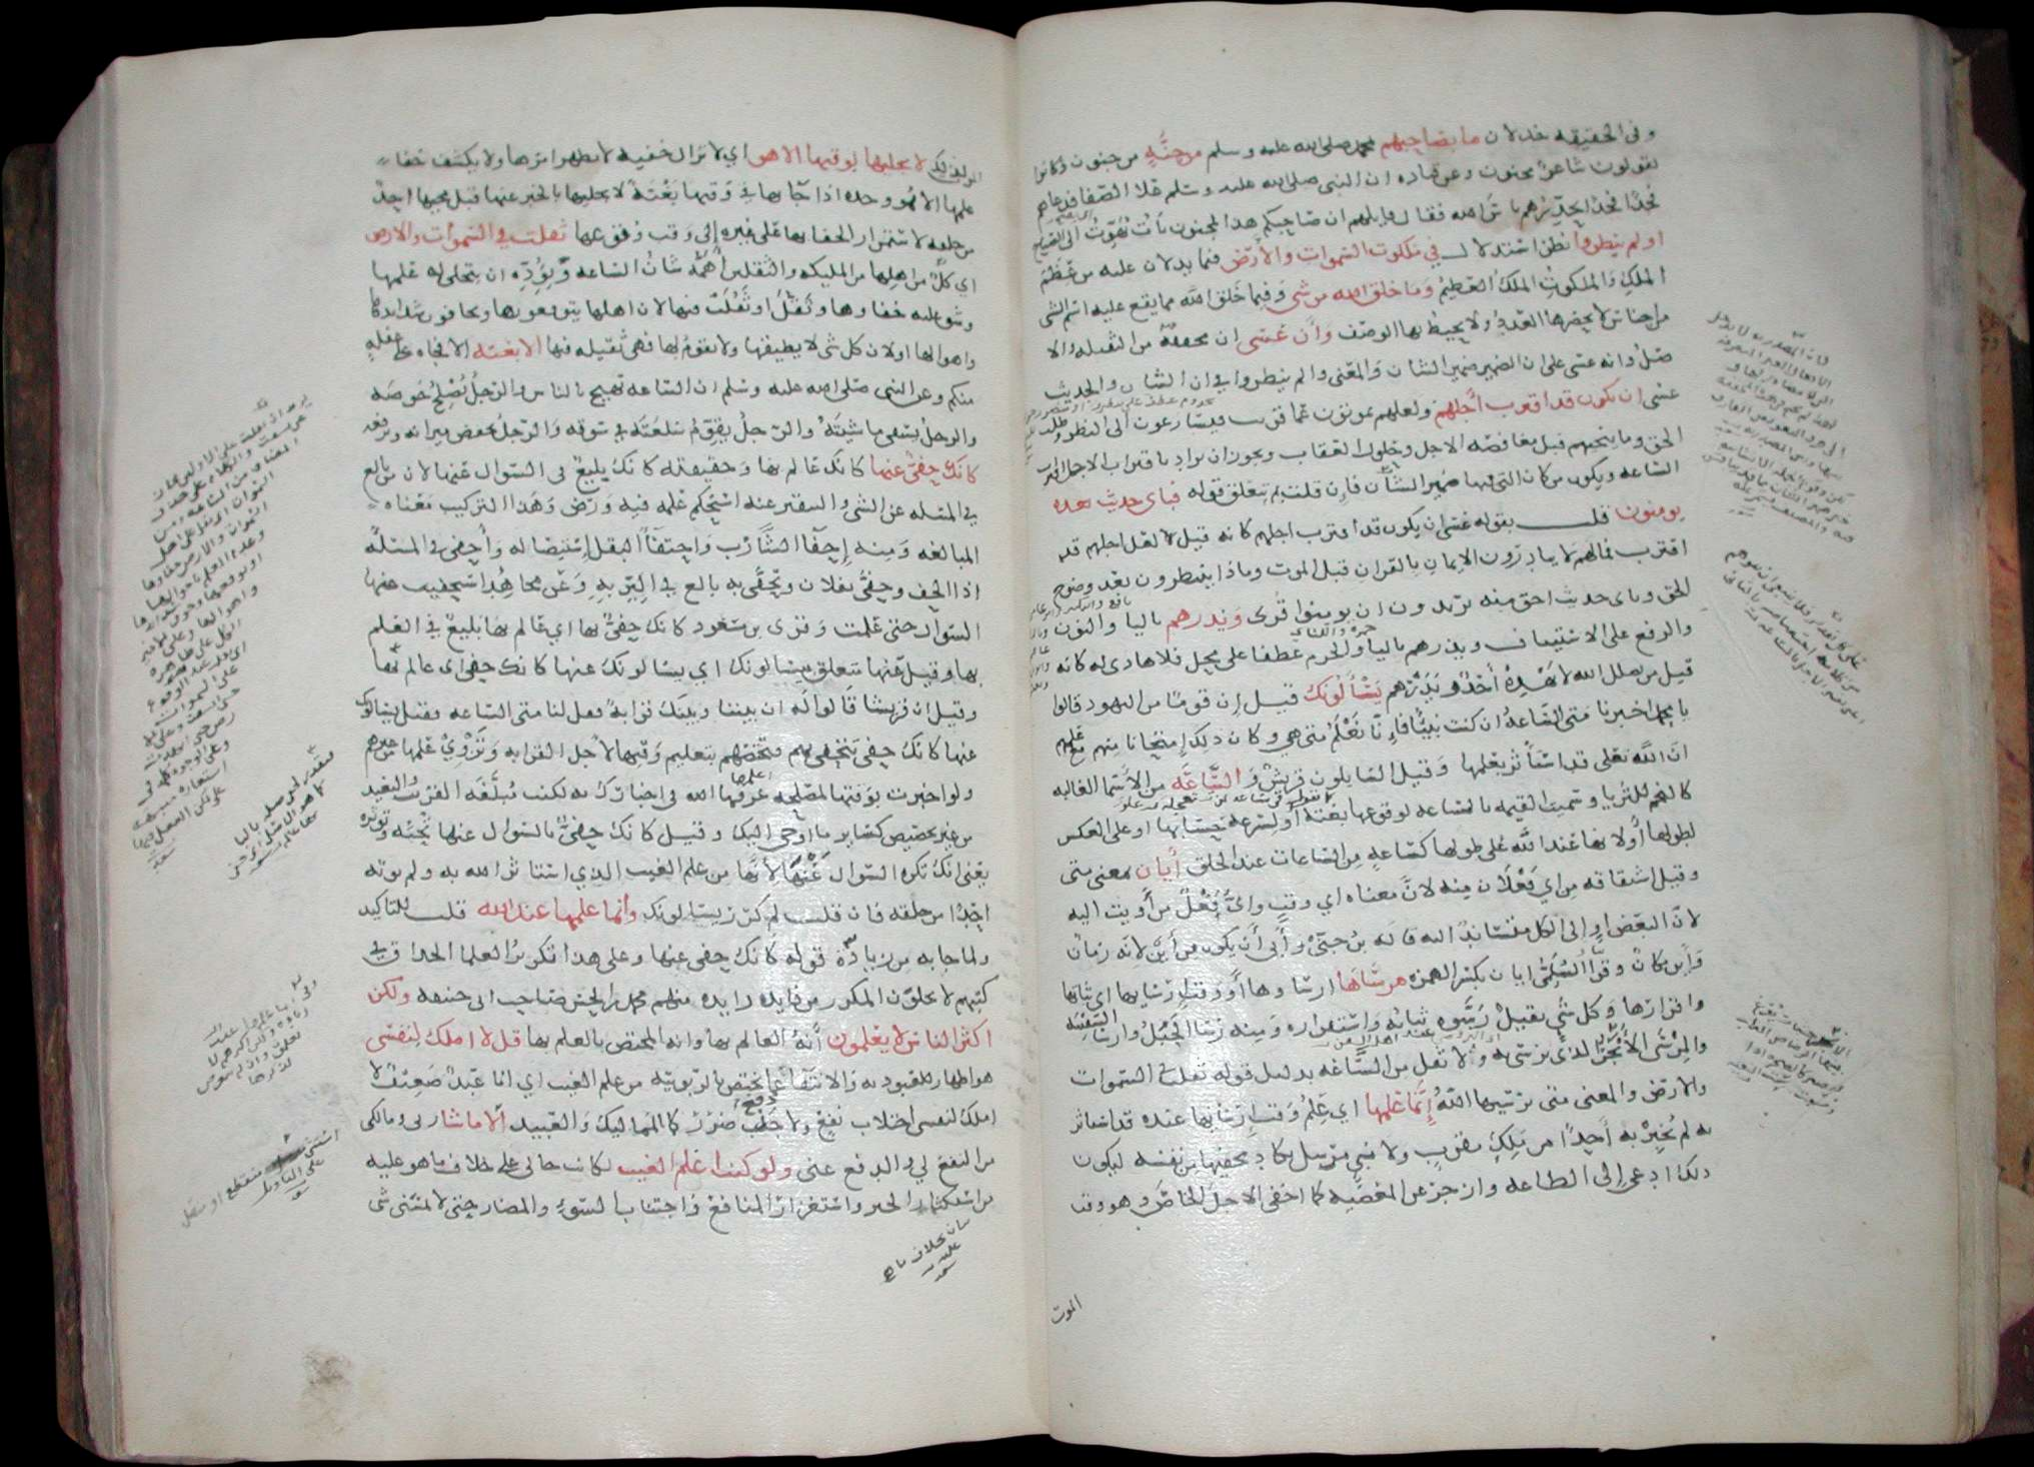 وفى الحقيقه خذلان ما بصاحبهم محمد صلى الله عليه وسلم من جنَّةٍ من جنون وكانوا
يقولون شاعر مجنون وعن قتاده ان النبى صلى الله عليه وسلم علا الصفا فدعاهم
فخذًا فخذًا يحذّرهم بأس الله فقال قايلهم ان صاحبكم هذا لمجنون بات يُهوِّت الى الصباح
اولم ينظروا نظر استدلال في ملكوت السموات والأرض فيما يدلان عليه من عِظَم
الملك والملكوت الملك العظيم وما خلق الله من شى وفيما خلق الله مما يقع عليه اسم الشى
من اجناس لا يحصرها العدد ولا يحيط بها الوصف وأن عسى ان مخففة من الثقيله والا
صل وانه عسى على ان الضمير ضمير الشان والمعنى اولم ينظروا في ان الشان والحديث
عسى ان يكون قد اقترب أجلهم ولعلهم يموتون عما قريب فيسارعون الى النظر وطلب
الحق وما ينجيهم قبل مغافصة الاجل وحلول العقاب ويجوز ان يراد باقتراب الاجل اقتراب
الساعه ويكون من كان التى فيها ضمير الشأن فإن قلت بم يتعلق قوله فباى حديث بعده
يومنون قلت بقوله عسى ان يكون قد اقترب اجلهم كانه قيل لعل اجلهم قد
اقترب فمالهم لا يبادرون الإيمان بالقران قبل الموت وماذا ينتظرون بعد وضوح
الحق وباى حديث احق منه يريدون ان يومنوا قُرى ويذرهم باليا والنون
والرفع على الاستيناف ويذرهم باليا والجزم عطفا على محل فلا هادى له كانه
قيل من يضلل الله لا يَهْدِهِ أحَدٌ ويَذَرْهم يَسْألُونَكَ قيل إن قومًا من اليهود قالوا
يا محمد اخبرنا متى الساعة ان كنت نبيًّا فإنَّا نَعْلَمُ متى هي وكان ذلك إمتحانا منهم مع علمهم
ان الله تعلى قد استأثر بعلمها وقيل السايلون قريش و السَّاعَة من الأسما الغالبه
كالنجم للثريا وسميت القيمه بالساعه لوقوعها بغتة أو لسرعة حسابها او على العكس
لطولها أو لانها عند الله على طولها كساعةٍ من الساعات عند الخلق أيان بمعنى متى
وقيل اشتقاقه من اي فَعْلَان منه لانَّ معناه اي وقتٍ واىُّ فِعْلٌ من أويت اليه
لانّ البعض اوٍ إلى الكل متساندٌ اليه قاله بنُ جِنّى وأبى أن يكون من أيْنَ لانه زمان
وأين مكان وقرأ السُّلَمِىّ ايان بكسر الهمزه مرساها ارساوها أو وقت ارسايها اى اثباتها
واقرارها وكل شى ثقيلٍ رُسُوّه ثباته واستقراره ومنه رسا الجَبَلُ وارسا السفينة
والمِرْسَى الأنجَر الذى ترسى به ولا اثقل من السَّاعَه بدليل قوله ثقلت في السموات
والارض والمعنى متى يرسيها اللهُ إنَّما علمها اي عِلْمُ وقت ارسايها عنده قد استاثر
به لم يُخْبِرْ به أحدًا من ملكٍ مقربٍ ولا نبى مرسل يكاد يخفيها من نفسه ليكون
ذلك ادعى إلى الطاعه وازجر عن المعصيه كما اخفى الاجل الخاص وهو وقت
الموت
الموت لذلك لا يجليها لوقتها الا هو اي لا تزال خفيه لا يظهر امرها ولا يكشف خفا
علمها الا هو وحده اذا جآ بها في وقتها بَغْتَةً لا يجليها بالخبر عنها قبل مجيها احدٌ
من خلقه لاستمرار الخفا بها على غيره إلى وقت وقوعها ثقلت في السموات والارض
اي كلٌّ من اهلها من المليكه والثقلين أهَمَّهُ شأنُ الساعه وبوُدِّه ان يتجلى له علمها
وشق عليه خفاوها وثَقُلَ او ثَقُلَتْ فيها لان اهلها يتوقعونها ويخافون شدايدها
واهوالها او لان كل شى لا يطيقها ولا يقوم لها فهى ثقيله فيها الا بغتة الا فجاه على غفلةٍ
منكم وعن النبى صلى الله عليه وسلم ان الساعه تهيج بالناس والرجلُ يُصْلِحُ حَوضَه
والرجلُ يسقى ماشيتَهُ والرجلُ يقوّم سلعَتَه في سُوقه والرجلُ يخفض ميزانه ويرفعه
كانك حفىٌّ عنها كانك عالم بها وحقيقته كانك بليغ فى السوال عنها لان من بالع
في المسله عن الشى والتنقير عنه استحكم علمه فيه ورَصُن وهذا التركيب معناه
المبالغه ومنه إحفآ الشَّارب واحتفآ البقل إستيصاله وأحفى فى المسئلة
اذا الحف وحفىَّ بفلان وتحفَّى به بالع في البِرِّ به وعن مجاهدٍ استحفيت عنها
السوال حتى علمت وقرى بن مسعود كانك حفىٌّ بها اي عالم بها بليغ في العلم
بها وقيل عنها متعلق بيسالونك اي يسالونك عنها كانك حفى اى عالم بها
وقيل ان قريشا قالوا له ان بيننا وبينك قرابةً فقل لنا متى الساعه فقيل يسالونك
عنها كانك حفى تتحفى بهم فتخصّهم بتعليم وقتها لأجل القرابه وتَزْوِيْ علمها عن غيرهم
ولو اخبرت بوقتها لمصلحه عرفها الله فى اخبارك به لكنت مُبَلِّغَه القريبَ والبعيد
من غير تخصيص كساير ما اوحى اليك وقيل كانك حفىٌّ بالسوال عنها تُحِبُّه وتوثره
يعنى انك تكره السوال عَنْهَا لأنَّها من علم الغيب الذي استاثر الله به ولم يوته
احَدًا من خلقه فان قلت لم كرر يسالونك وانما علمها عند الله قلت للتاكيد
ولما جا به من زيادة قوله كانك حفى عنها وعلى هذا تكرير العلما الحذاق فى
كتبهم لا يخلون المكرر من فايده زايده منهم محمد بن الحسن صاحب ابى حنيفه ولكن
اكثر الناس لا يعلمون أنَّهُ العالم بها وانه المختص بالعلم بها قل لا املك لِنَفسى
هو اظهار للعبوديه والانتفآ عما يختص بالربوبيه من علم الغيب اي انا عبدٌ ضعيفٌ لا
املك لنفسى اجتلاب نفعٍ ولا دفع ضررٍ كالمماليك والعبيد الا ما شا ربى ومالكى
من النفع لى والدفع عنى ولو كنت اعلم الغيب لكانت حالى على خلاف ما هو عليه
من استكثار الخير واستغزار المنافع واجتناب السوء والمضار حتى لا يمسّنى شى